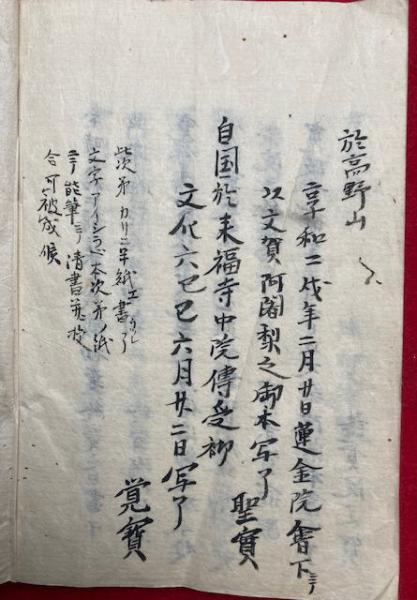 於高野山
享和二戌年二月廿日蓮金院會下ニテ
以文賀阿闍梨之御本写了
聖寶
自国於来福寺中院傳受初
文化六巳巳六月廿二日写了
覚寶
此次第カリニ草紙エ書
文字アイシラベ本次第ノ紙
能筆ニテ清書並
合可被成候